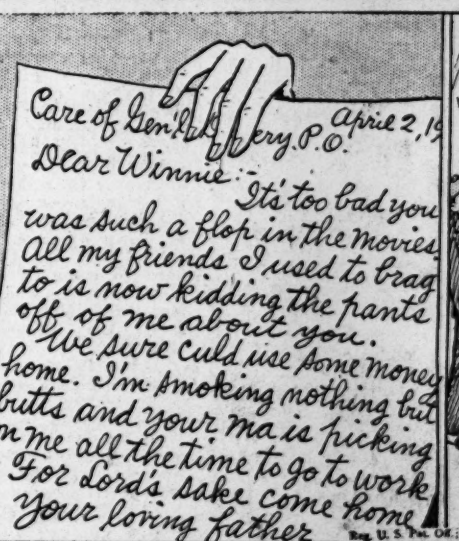 Care of Gen'l ery. P.O.
April 2, 19
Dear Winnie:-
It's too bad you
was such a flop in the movies.
All my friends I used to brag
to is now kidding the pants
off of me about you.
We sure culd use some money
home. I'm smoking nothing but
butts and your ma is picking
n me all the time to go to work
For Lord's sake come home
Your loving father
Reg. U. S. Pat. Off.;